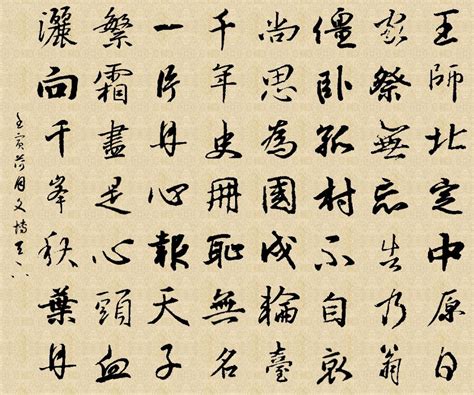 王師北定中原日
家祭無忘告乃翁
僵臥孤村不自哀
尚思為國戍輪臺
千年史冊恥無名
一片丹心報天子
繁霜盡是心頭血
灑向千峯秋葉丹
壬寅荷月文博